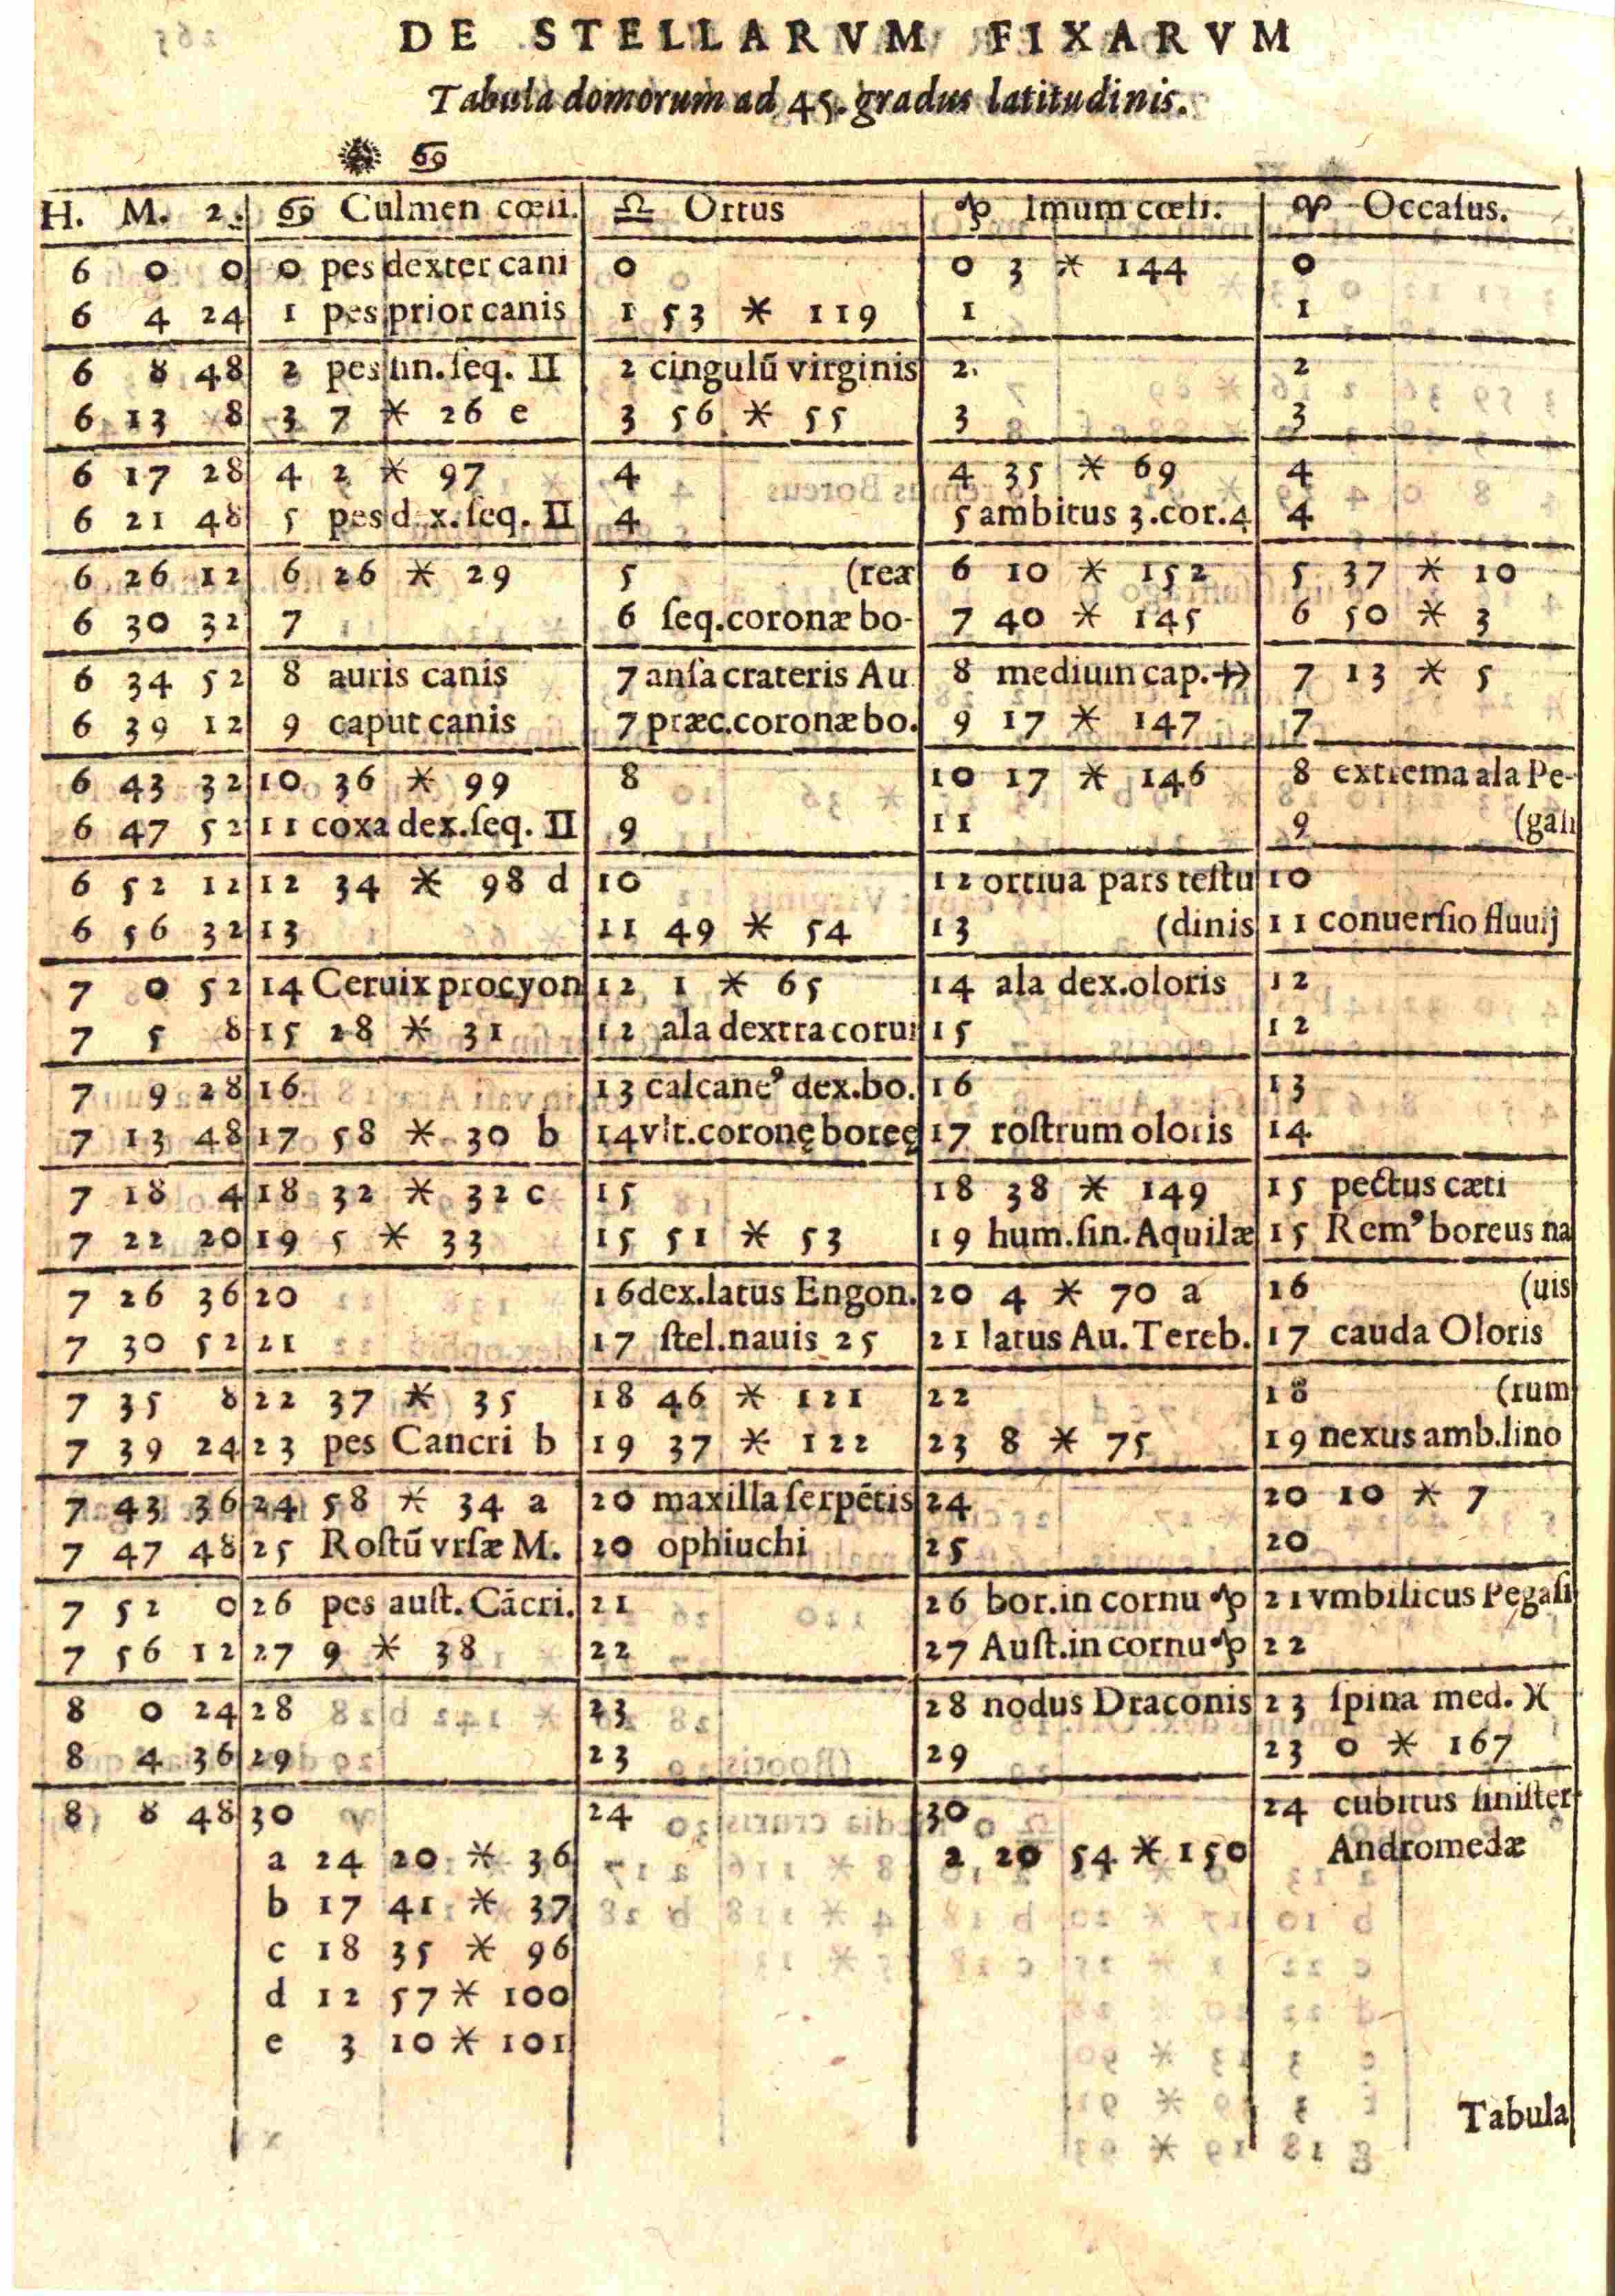 DE STELLARVM FIXARVM
Tabula domorum ad 45. gradus latitudinis.
☉ ♋
H. M. 2. ♋ Culmen cœli. ♎ Ortus ♑ Imum cœli. ♈ Occaſus.
6 0 0 0 pes dexter cani 0 0 3 * 144 0
6 4 24 1 pes prior canis 1 53 * 119 1 1
6 8 48 2 pes ſin. ſeq. II 2 cingulū virginis 2. 2
6 13 8 3 7 * 26 e 3 56 * 55 3 3
6 17 28 4 2 * 97 4 4 35 * 69 4
6 21 48 5 pes d x. ſeq. II 4 5 ambitus 3. cor. 4 4
6 26 12 6 26 * 29 5 (reæ 6 10 * 152 5 37 * 10
6 30 32 7 6 ſeq. coronæ bo- 7 40 * 145 6 50 * 3
6 34 52 8 auris canis 7 anſa crateris Au 8 medium cap. ♐ 7 13 * 5
6 39 12 9 caput canis 7 præc. coronæ bo. 9 17 * 147 7
6 43 32 10 36 * 99 8 10 17 * 146 8 extrema ala Pe-
6 47 52 11 coxa dex. ſeq. II 9 11 9 (gaſi
6 52 12 12 34 * 98 d 10 12 ortiua pars teſtu 10
6 56 32 13 11 49 * 54 13 (dinis 11 conuerſio fluuij
7 0 52 14 Ceruix procyon 12 1 * 65 14 ala dex. oloris 12
7 5 8 15 28 * 31 12 ala dextra corui 15 12
7 9 28 16 13 calcaneꝰ dex. bo. 16 13
7 13 48 17 58 * 30 b 14 vlt. coronę boreę 17 roſtrum oloris 14
7 18 4 18 32 * 32 c 15 18 38 * 149 15 pectus cæti
7 22 20 19 5 * 33 15 51 * 53 19 hum. ſin. Aquilæ 15 Remꝰ boreus na
7 26 36 20 16 dex. latus Engon. 20 4 * 70 a 16 (uis
7 30 52 21 17 ſtel. nauis 25 21 latus Au. Tereb. 17 cauda Oloris
7 35 8 22 37 * 35 18 46 * 121 22 18 (rum
7 39 24 23 pes Cancri b 19 37 * 122 23 8 * 75 19 nexus amb. lino
7 43 36 24 58 * 34 a 20 maxilla ſerpētis 24 20 10 * 7
7 47 48 25 Roſtū vrſæ M. 20 ophiuchi 25 20
7 52 0 26 pes auſt. Cācri. 21 26 bor. in cornu ♑ 21 vmbilicus Pegaſi
7 56 12 27 9 * 38 22 27 Auſt. in cornu ♑ 22
8 0 24 28 23 28 nodus Draconis 23 ſpina med. ♓
8 4 36 29 23 29 23 0 * 167
8 8 48 30 24 30 24 cubitus ſiniſter
a 24 20 * 36 2 20 54 * 150 Andromedæ
b 17 41 * 37
c 18 35 * 96
d 12 57 * 100
e 3 10 * 101
Tabula